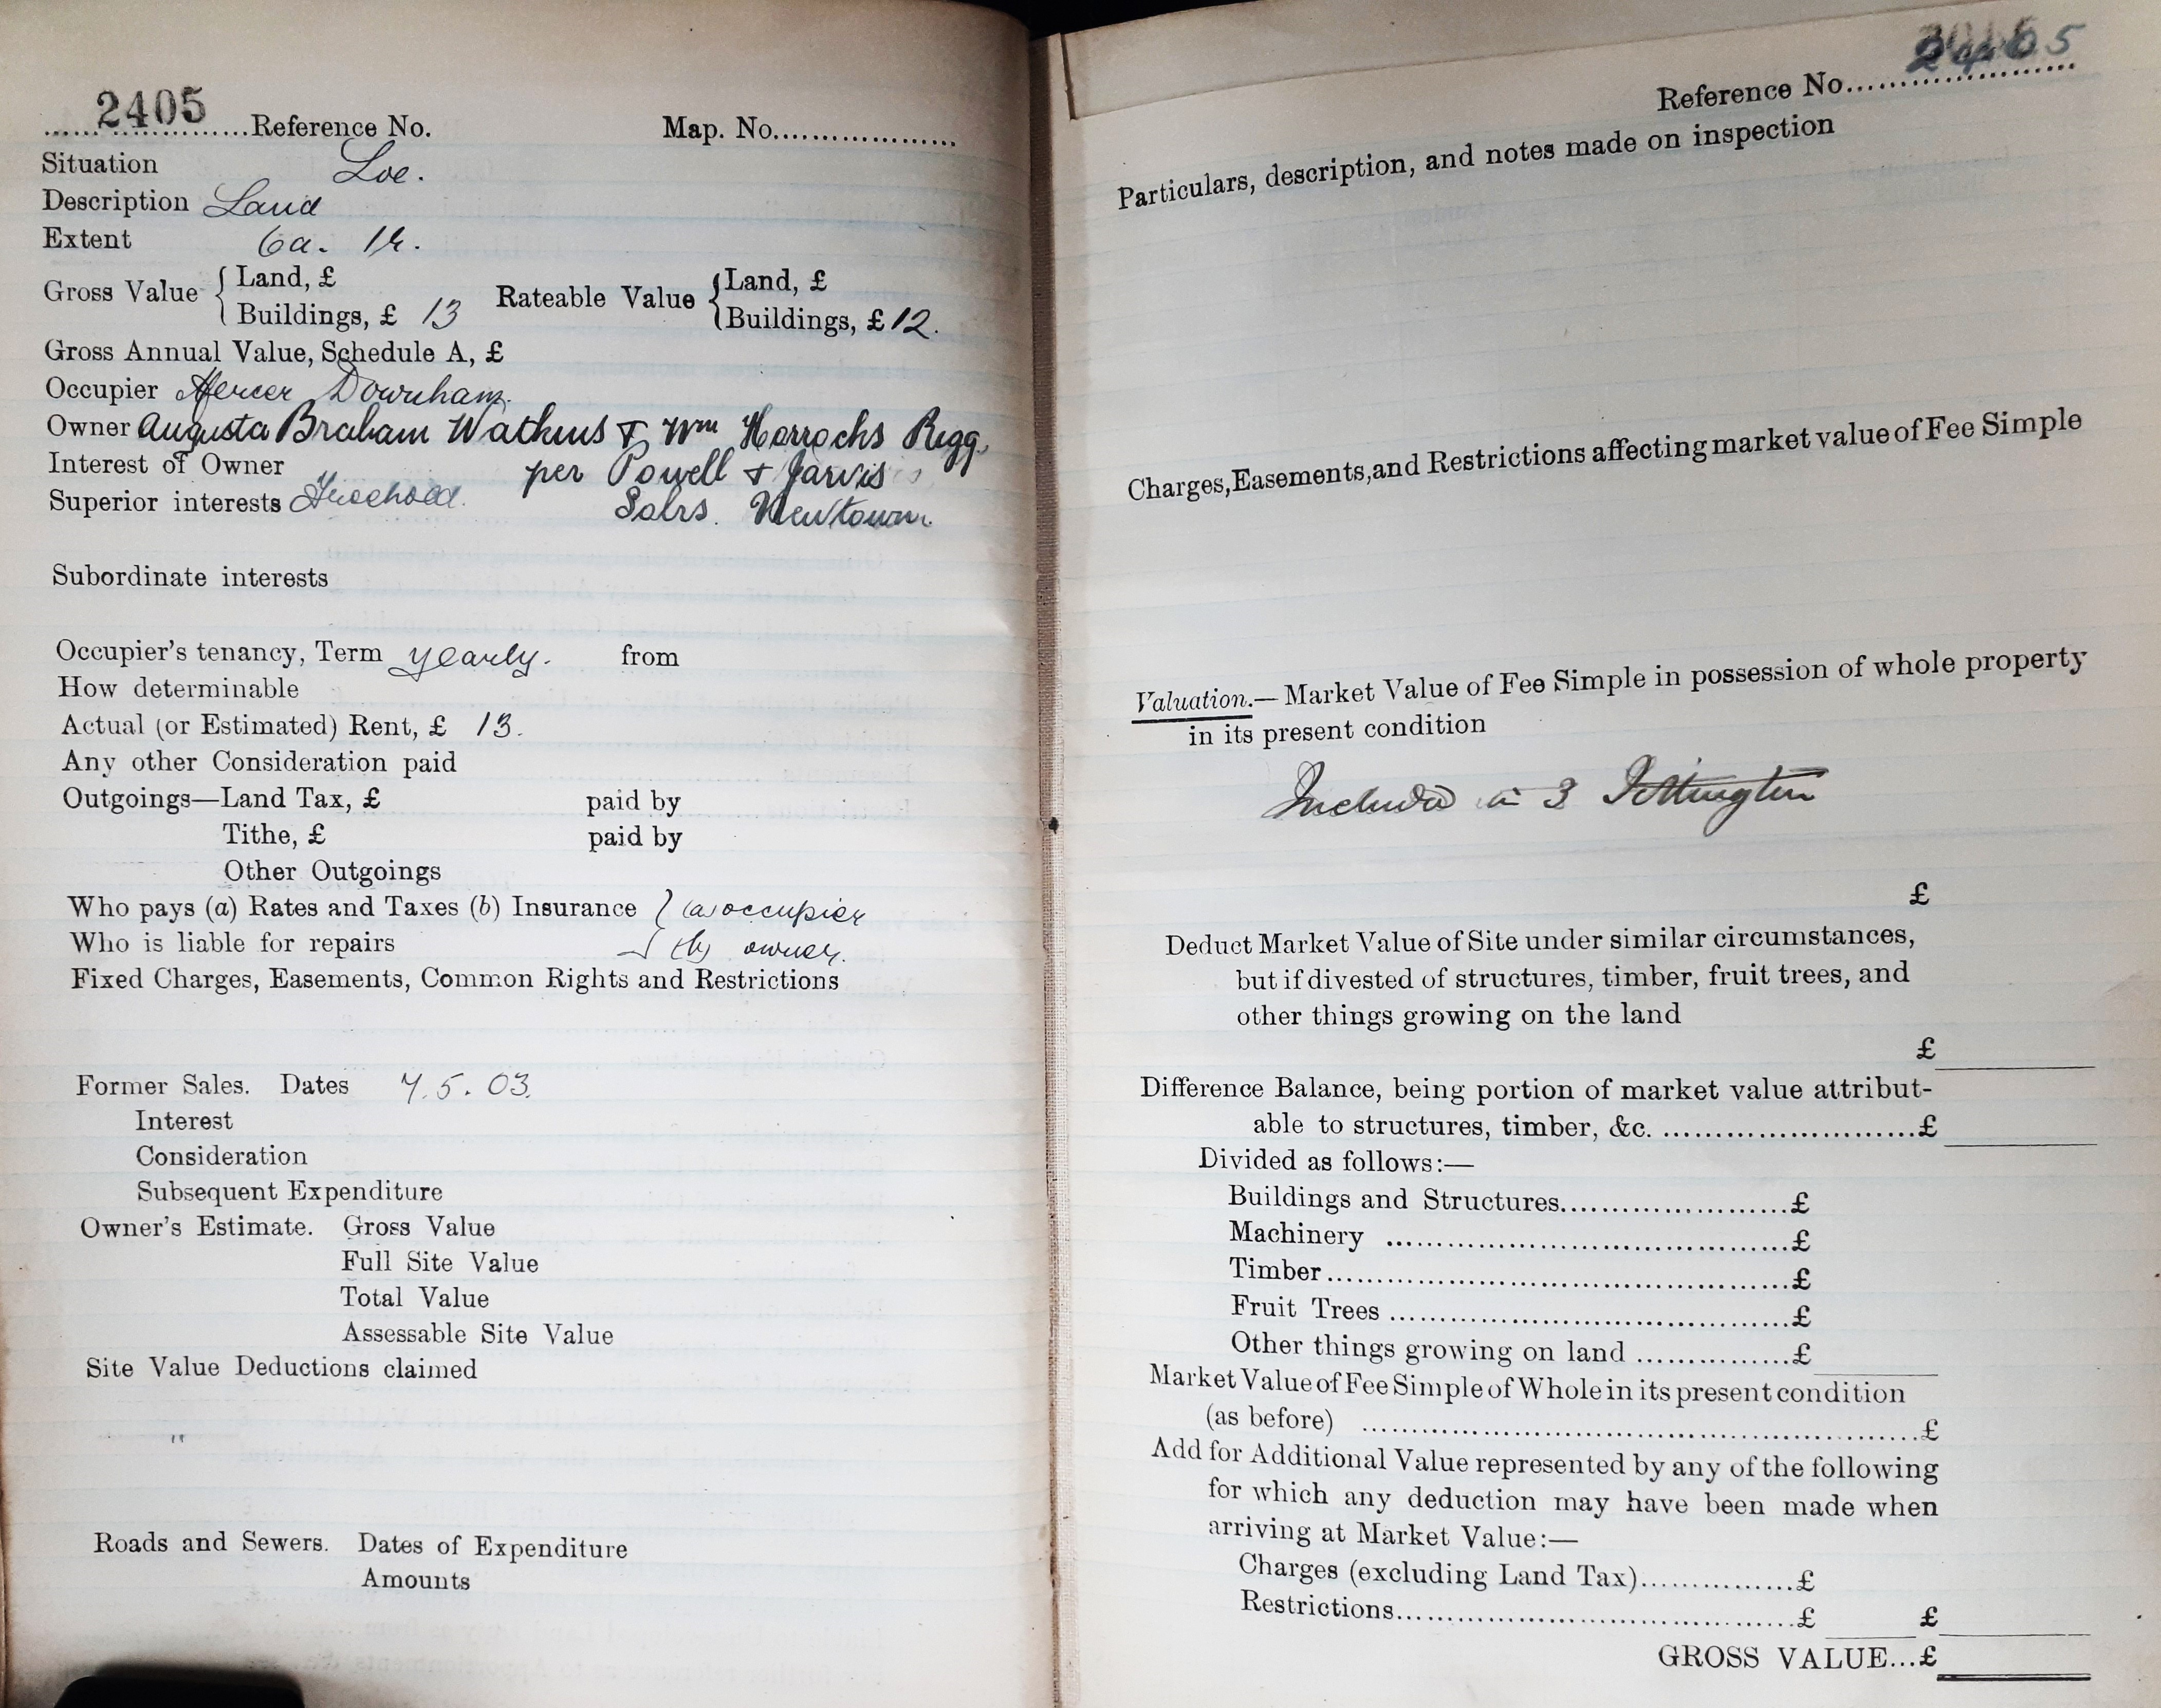 2405 Reference No. Map. No.
Situation Loe.
Description Land
Extent 6a. 1r.
Gross Value { Land, £ Rateable Value { Land, £
Buildings, £ 13 Buildings, £ 12.
Gross Annual Value, Schedule A, £
Occupier Mercer Downham.
Owner Augusta Braham Watkins & Wm Horrocks Rigg.
Interest of Owner per Powell & Jarvis
Superior interests Freehold. Solrs. Newtown.
Subordinate interests
Occupier's tenancy, Term yearly. from
How determinable
Actual (or Estimated) Rent, £ 13.
Any other Consideration paid
Outgoings—Land Tax, £ paid by
Tithe, £ paid by
Other Outgoings
Who pays (a) Rates and Taxes (b) Insurance } (a) occupier
Who is liable for repairs } (b) owner.
Fixed Charges, Easements, Common Rights and Restrictions
Former Sales. Dates 7.5.03.
Interest
Consideration
Subsequent Expenditure
Owner's Estimate. Gross Value
Full Site Value
Total Value
Assessable Site Value
Site Value Deductions claimed
"
Roads and Sewers. Dates of Expenditure
Amounts
Reference No. 2405
Particulars, description, and notes made on inspection
Charges, Easements, and Restrictions affecting market value of Fee Simple
Valuation.—Market Value of Fee Simple in possession of whole property
in its present condition
Included in 3
£
Deduct Market Value of Site under similar circumstances,
but if divested of structures, timber, fruit trees, and
other things growing on the land
£
Difference Balance, being portion of market value attribut-
able to structures, timber, &c. £
Divided as follows:—
Buildings and Structures £
Machinery £
Timber £
Fruit Trees £
Other things growing on land £
Market Value of Fee Simple of Whole in its present condition
(as before) £
Add for Additional Value represented by any of the following
for which any deduction may have been made when
arriving at Market Value:—
Charges (excluding Land Tax) £
Restrictions £ £
GROSS VALUE...£